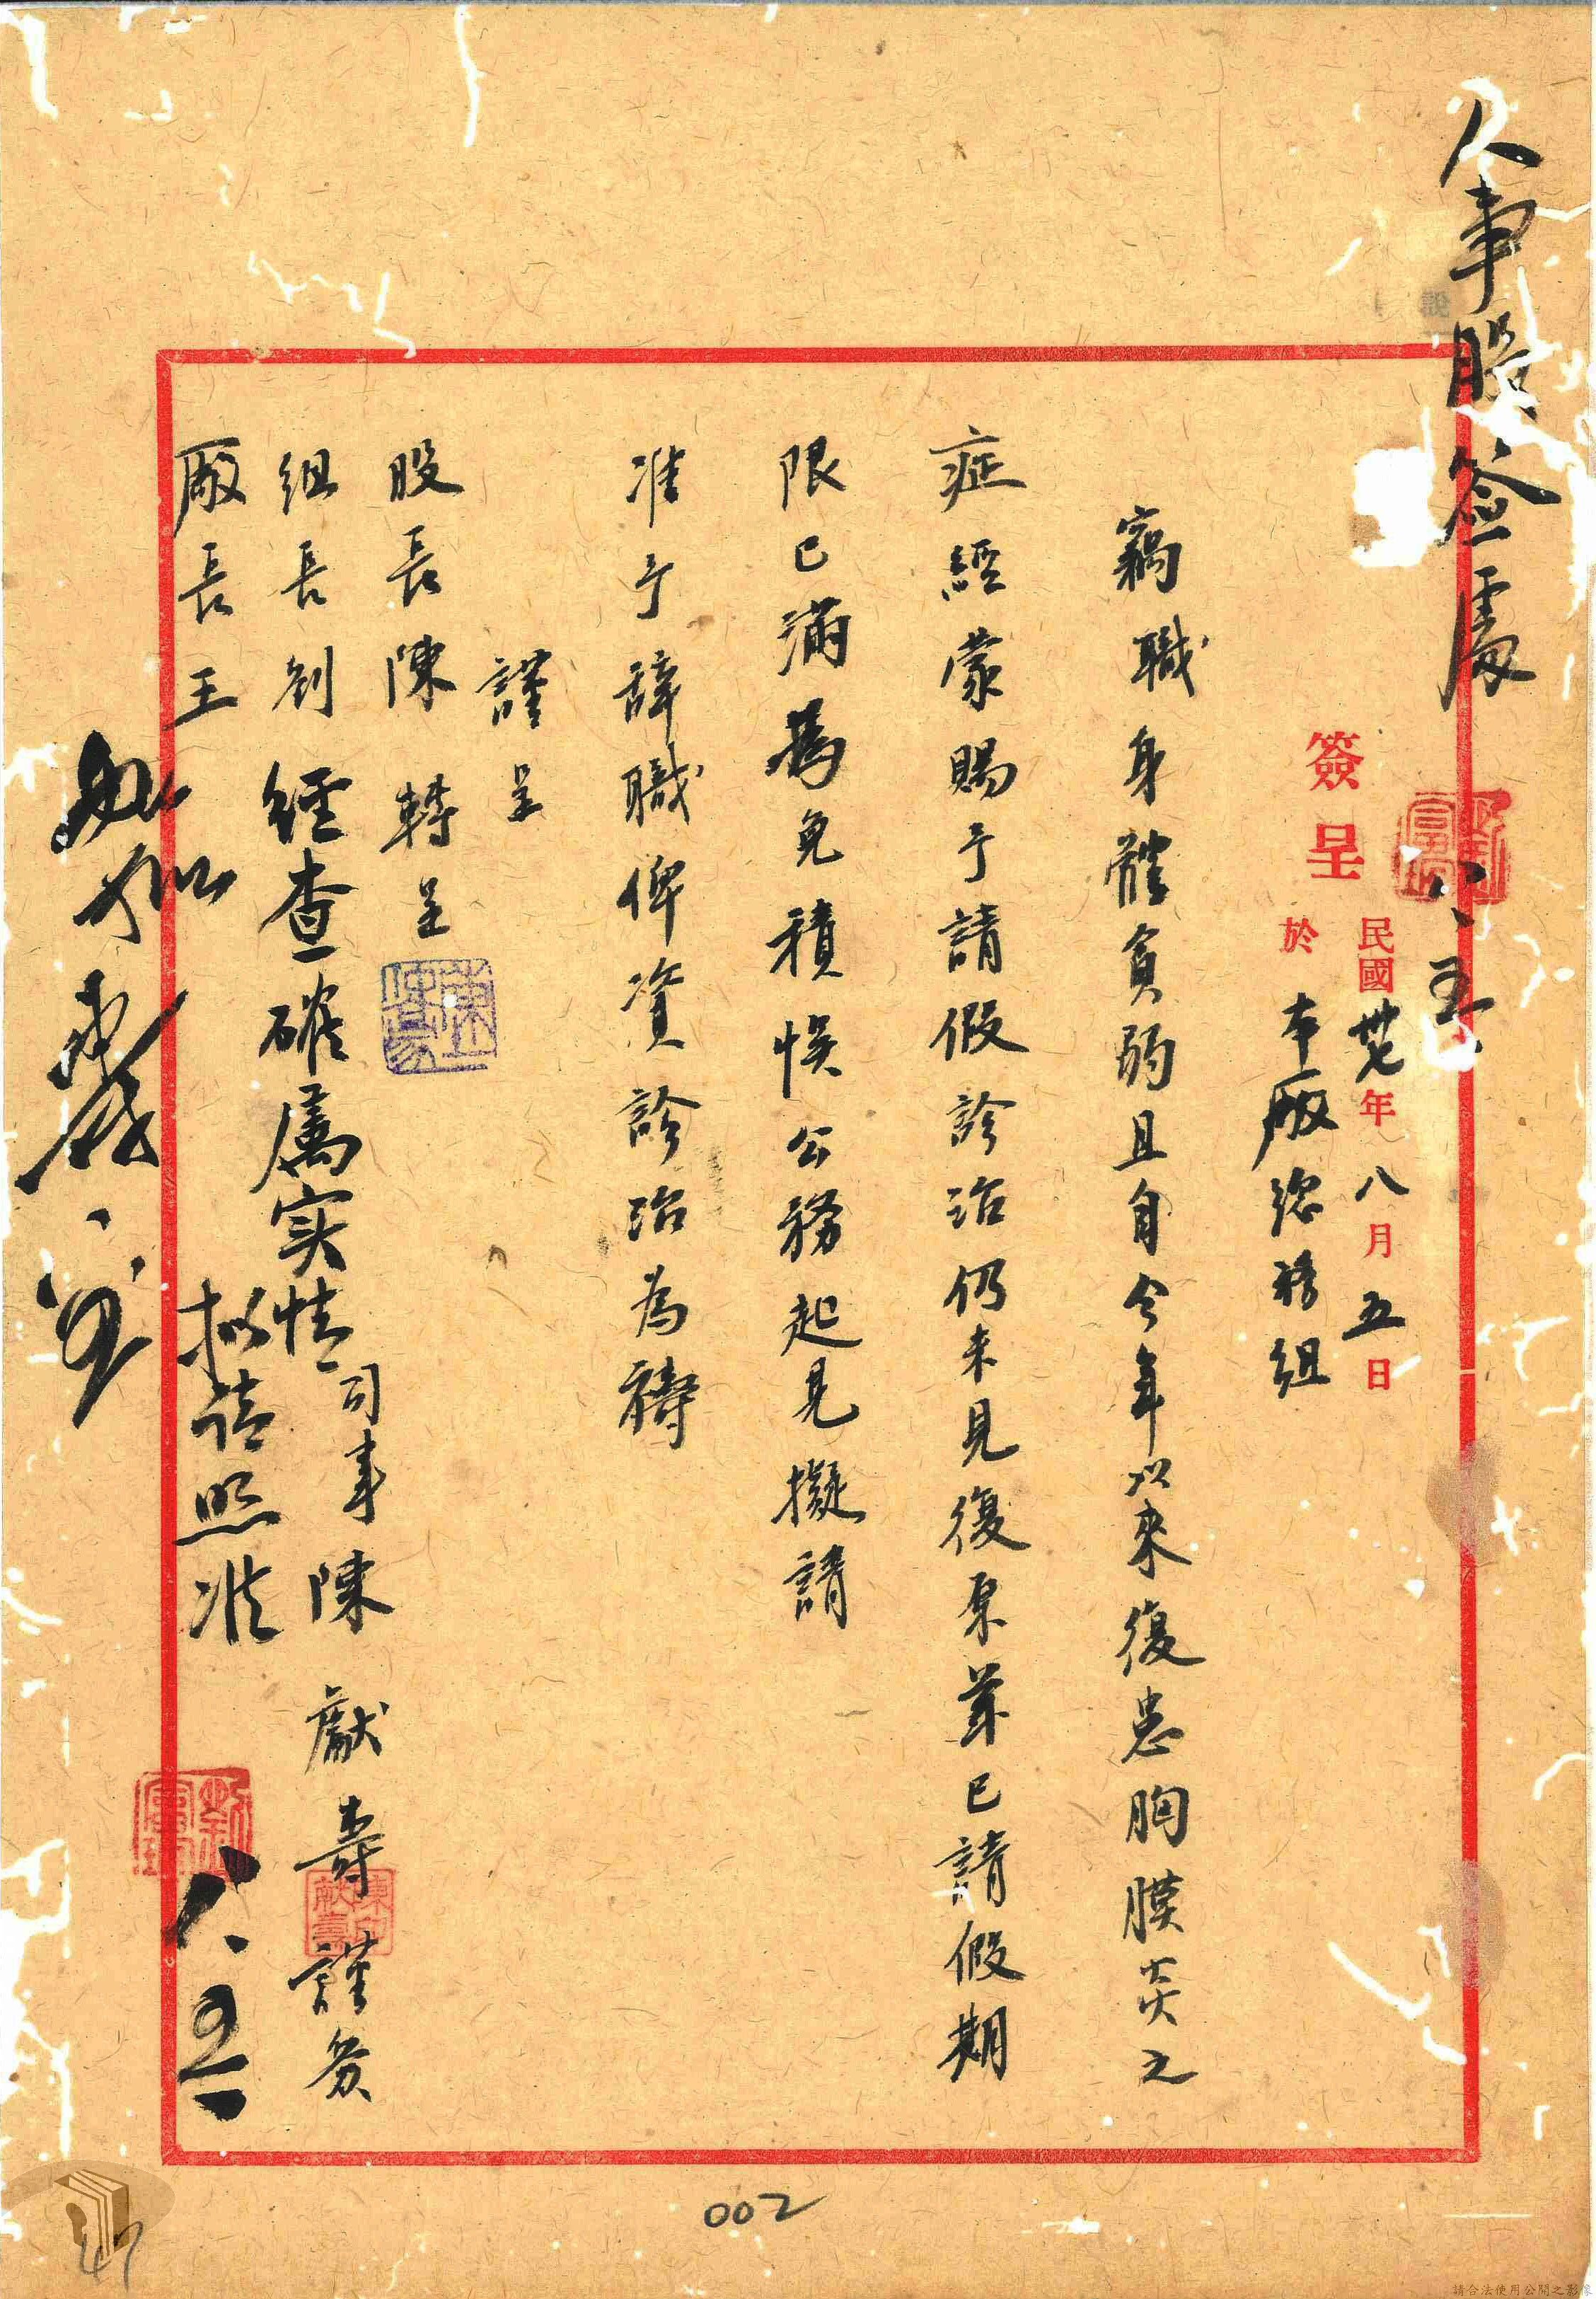 人事股簽處 八、五、
簽呈
民國卅七年八月五日
於 本廠總務組
竊職身體貧弱且自今年以來復患胸膜炎之
症經蒙賜予請假診治仍未見復原茲已請假期
限已滿為免積悞公務起見擬請
准予辭職俾資診治為禱
謹呈
股長陳 轉呈
組長劉
廠長王
經查確属实情
拟請照准
八、五
司事陳獻壽謹簽
陳印獻壽
如拟
002
請合法使用公開之影像